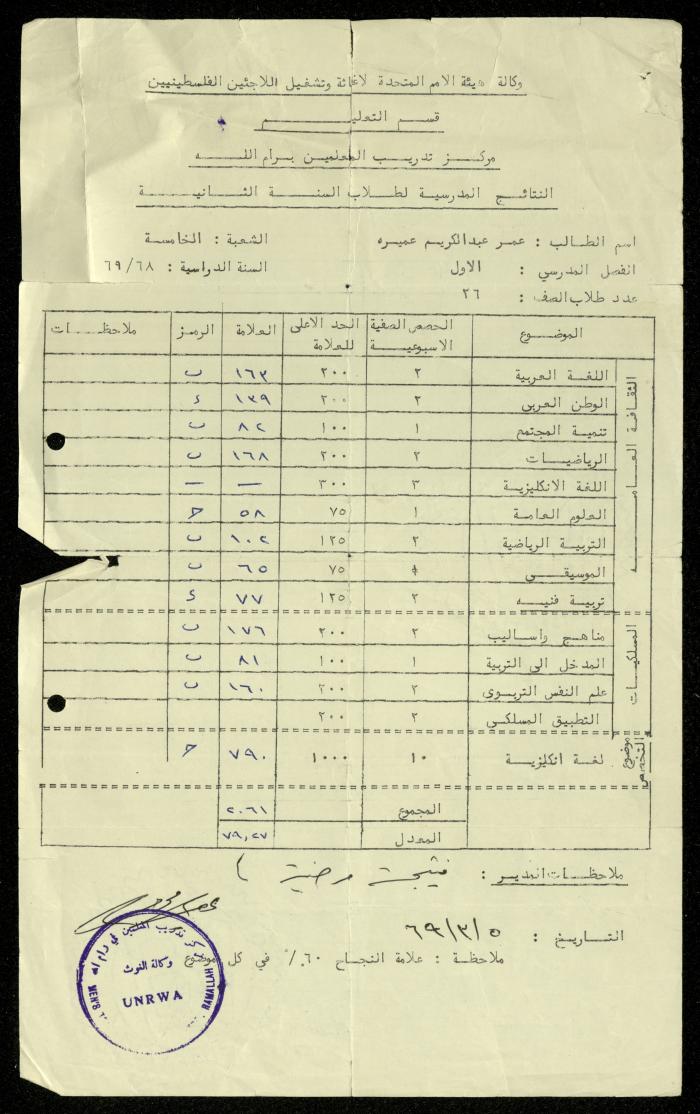 وكالة هيئة الامم المتحدة لاغاثة وتشغيل اللاجئين الفلسطينيين
قسم التعليم
مركز تدريب المعلمين برام الله
النتائج المدرسية لطلاب السنة الثانية
اسم الطالب : عمر عبدالكريم عميره الشعبة : الخامسة
الفصل المدرسي : الاول السنة الدراسية : ٦٩/٦٨
عدد طلاب الصف : ٢٦
الموضوع الحصص الصفية الاسبوعية الحد الاعلى للعلامة العلامة الرمز ملاحظات
الثقافة العامة
اللغة العربية ٢ ٢٠٠ ١٦٣ ب
الوطن العربي ٢ ٢٠٠ ١٣٩ د
تنمية المجتمع ١ ١٠٠ ٨٢ ب
الرياضيات ٢ ٢٠٠ ١٦٨ ب
اللغة الانكليزية ٣ ٣٠٠ — —
العلوم العامة ١ ٧٥ ٥٨ ج
التربية الرياضية ٢ ١٢٥ ١٠٢ ب
الموسيقى ٧٥ ٦٥ ب
تربية فنيه ٢ ١٢٥ ٧٧ د
المسلكيات
مناهج واساليب ٢ ٢٠٠ ١٧٦ ب
المدخل الى التربية ١ ١٠٠ ٨١ ب
علم النفس التربوى ٢ ٢٠٠ ١٦٠ ب
التطبيق المسلكى ٢ ٢٠٠
موضوع التخصص
لغة انكليزية ١٠ ١٠٠٠ ٧٩٠ ج
المجموع ٢٠٦١
المعدل ٧٩,٢٧
ملاحظات المدير : نتيجة مرضية
التاريخ : ٦٩/٣/٥
ملاحظة : علامة النجاح ٦٠٪ في كل موضوع
مركز تدريب المعلمين في رام الله
وكالة الغوث
UNRWA
MEN'S
RAMALLAH